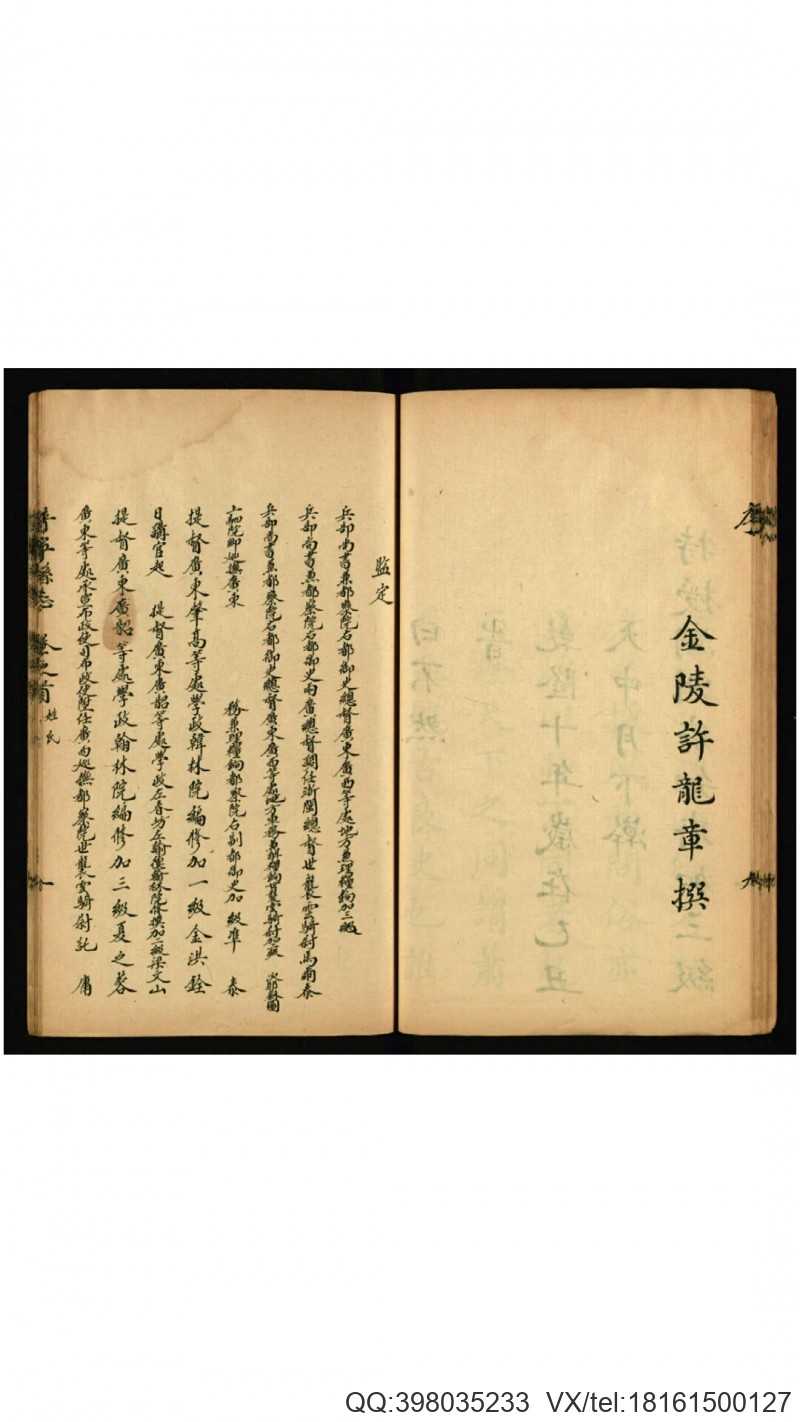 金陵許龍章撰
監定
兵部尚書兼都察院右都御史總督廣東廣西等處地方兼理糧餉加三級
兵部尚書兼都察院右都御史兩廣總督調任浙閩總督世襲雲騎尉馬爾泰
兵部尚書兼都察院右都御史總督廣東廣西等處地方軍務兼理糧餉
巡撫廣東 務兼理糧餉都察院右副都御史加級準 泰
提督廣東肇高等處學政翰林院編修加一級金洪銓
日講官起 提督廣東廣韶等處學政左春坊左諭德翰林院修撰加一級梁文山
提督廣東廣韶等處學政翰林院編修加三級夏之蓉
廣東等處承宣布政使司布政使陞任廣西巡撫都察院世襲雲騎尉託 庸
縣志 卷之首 姓氏
QQ:398035233 VX/tel:18161500127